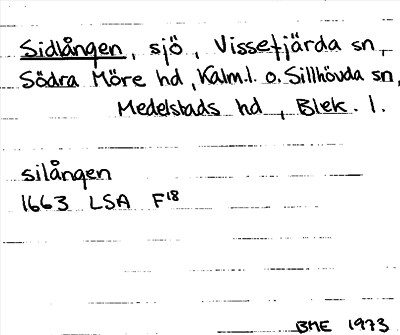 Sidlången, sjö, Vissefjärda sn,
Södra Möre hd, Kalm.l. o. Sillhövda sn,
Medelstads hd, Blek. l.
silången
1663 LSA F18
BME 1973